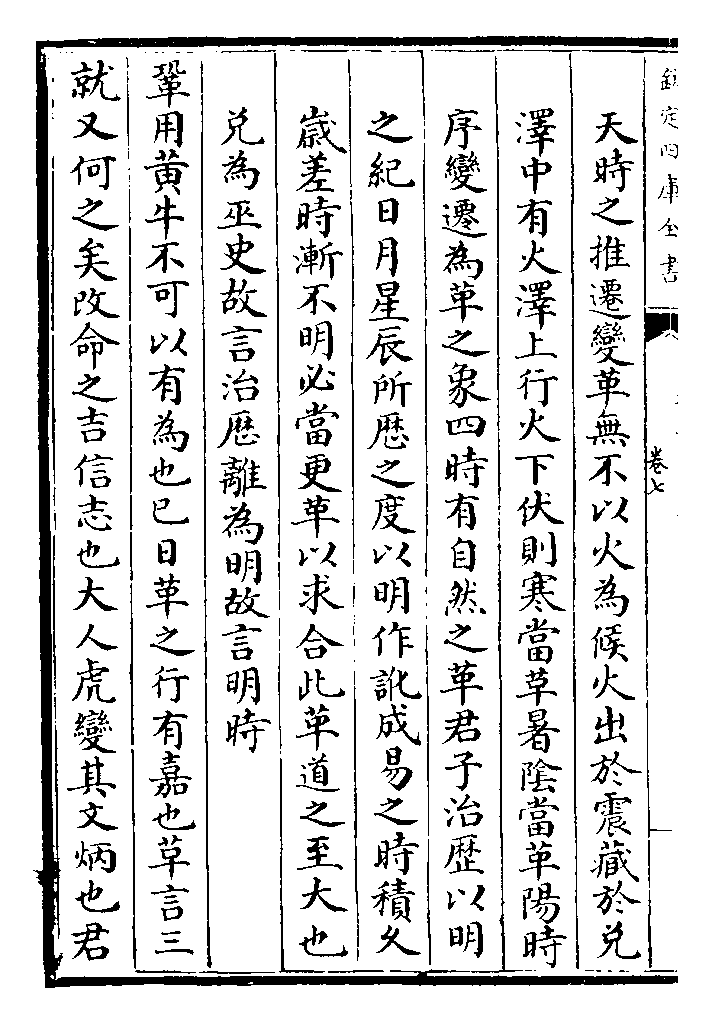 欽定四庫全書
卷七
天時之推遷變革無不以火為候火出於震藏於兌
澤中有火澤上行火下伏則寒當草暑陰當革陽時
序變遷為革之象四時有自然之革君子治歴以明
之紀日月星辰所歴之度以明作訛成易之時積久
嵗差時漸不明必當更革以求合此革道之至大也
兌為巫史故言治歴離為明故言明時
鞏用黄牛不可以有為也巳日革之行有嘉也草言三
就又何之矣改命之吉信志也大人虎變其文炳也君